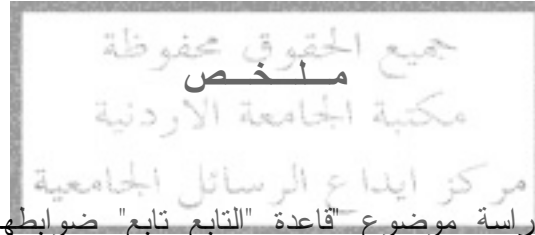 جميع الحقوق محفوظة
ملخص
مكتبة الجامعة الاردنية
مركز ايداع الرسائل الجامعية
راسة موضوع "قاعدة "التابع تابع" ضوابطه